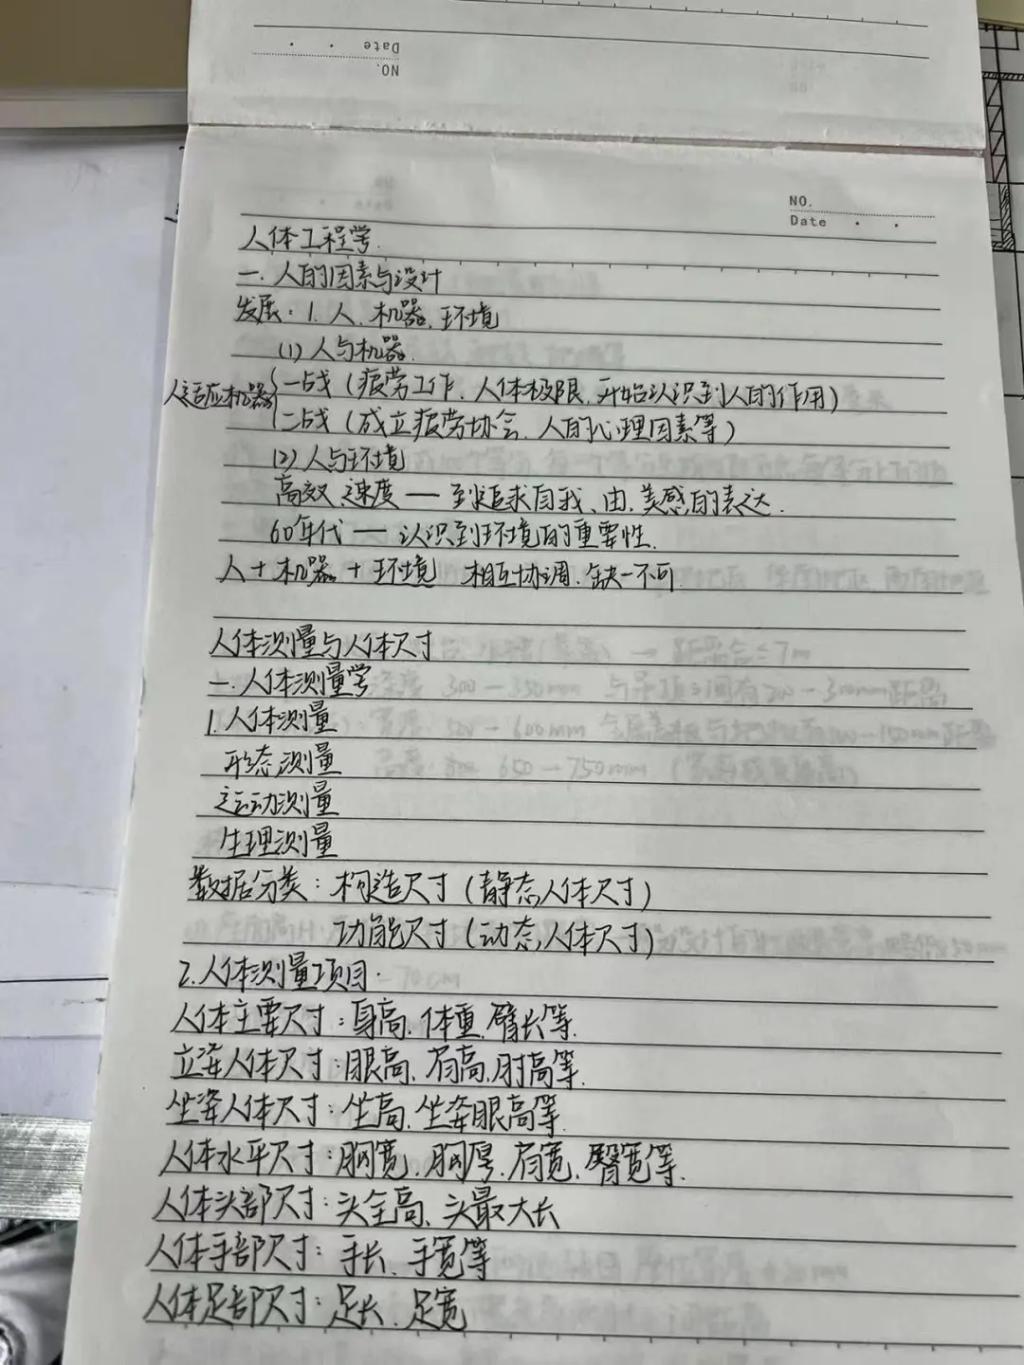 Date
NO.
NO.
Date
人体工程学.
一. 人的因素与设计
发展: 1. 人. 机器. 环境
(1) 人与机器.
人适应机器{一战 (疲劳工作. 人体极限. 开始认识到人的作用)
二战 (成立疲劳协会. 人的心理因素等)
(2) 人与环境
高效、速度 — 到追求自我、由、美感的表达.
60年代 — 认识到环境的重要性.
人 + 机器 + 环境 相互协调. 缺一不可.
人体测量与人体尺寸
一. 人体测量学
1. 人体测量
形态测量
运动测量
生理测量
数据分类: 构造尺寸 (静态人体尺寸)
功能尺寸 (动态人体尺寸)
2. 人体测量项目.
人体主要尺寸: 身高. 体重. 臂长等.
立姿人体尺寸: 眼高. 肩高. 肘高等.
坐姿人体尺寸: 坐高. 坐姿眼高等.
人体水平尺寸: 胸宽. 胸厚. 肩宽. 臀宽等.
人体头部尺寸: 头全高. 头最大长
人体手部尺寸: 手长. 手宽等
人体足部尺寸: 足长. 足宽